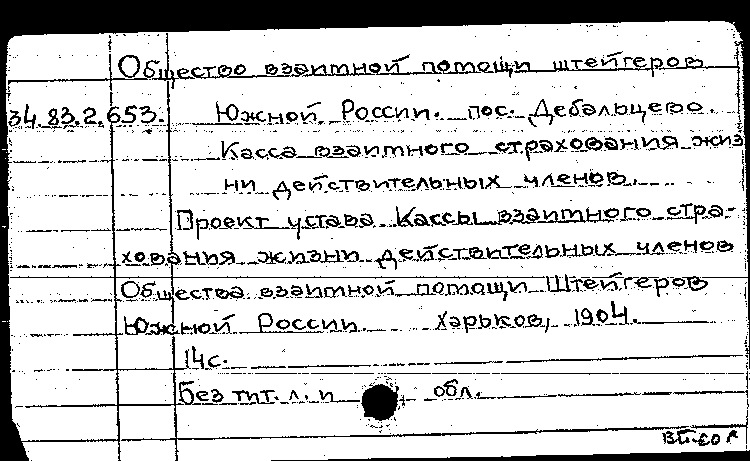 Общество взаимной помощи штейгеров
34.83.2.653. Южной России. пос. Дебальцево.
Касса взаимного страхования жиз
ни действительных членов.
Проект устава Кассы взаимного стра-
хования жизни действительных членов
Общества взаимной помощи Штейгеров
Южной России Харьков, 1904.
14с.
Без тит. л. и обл.